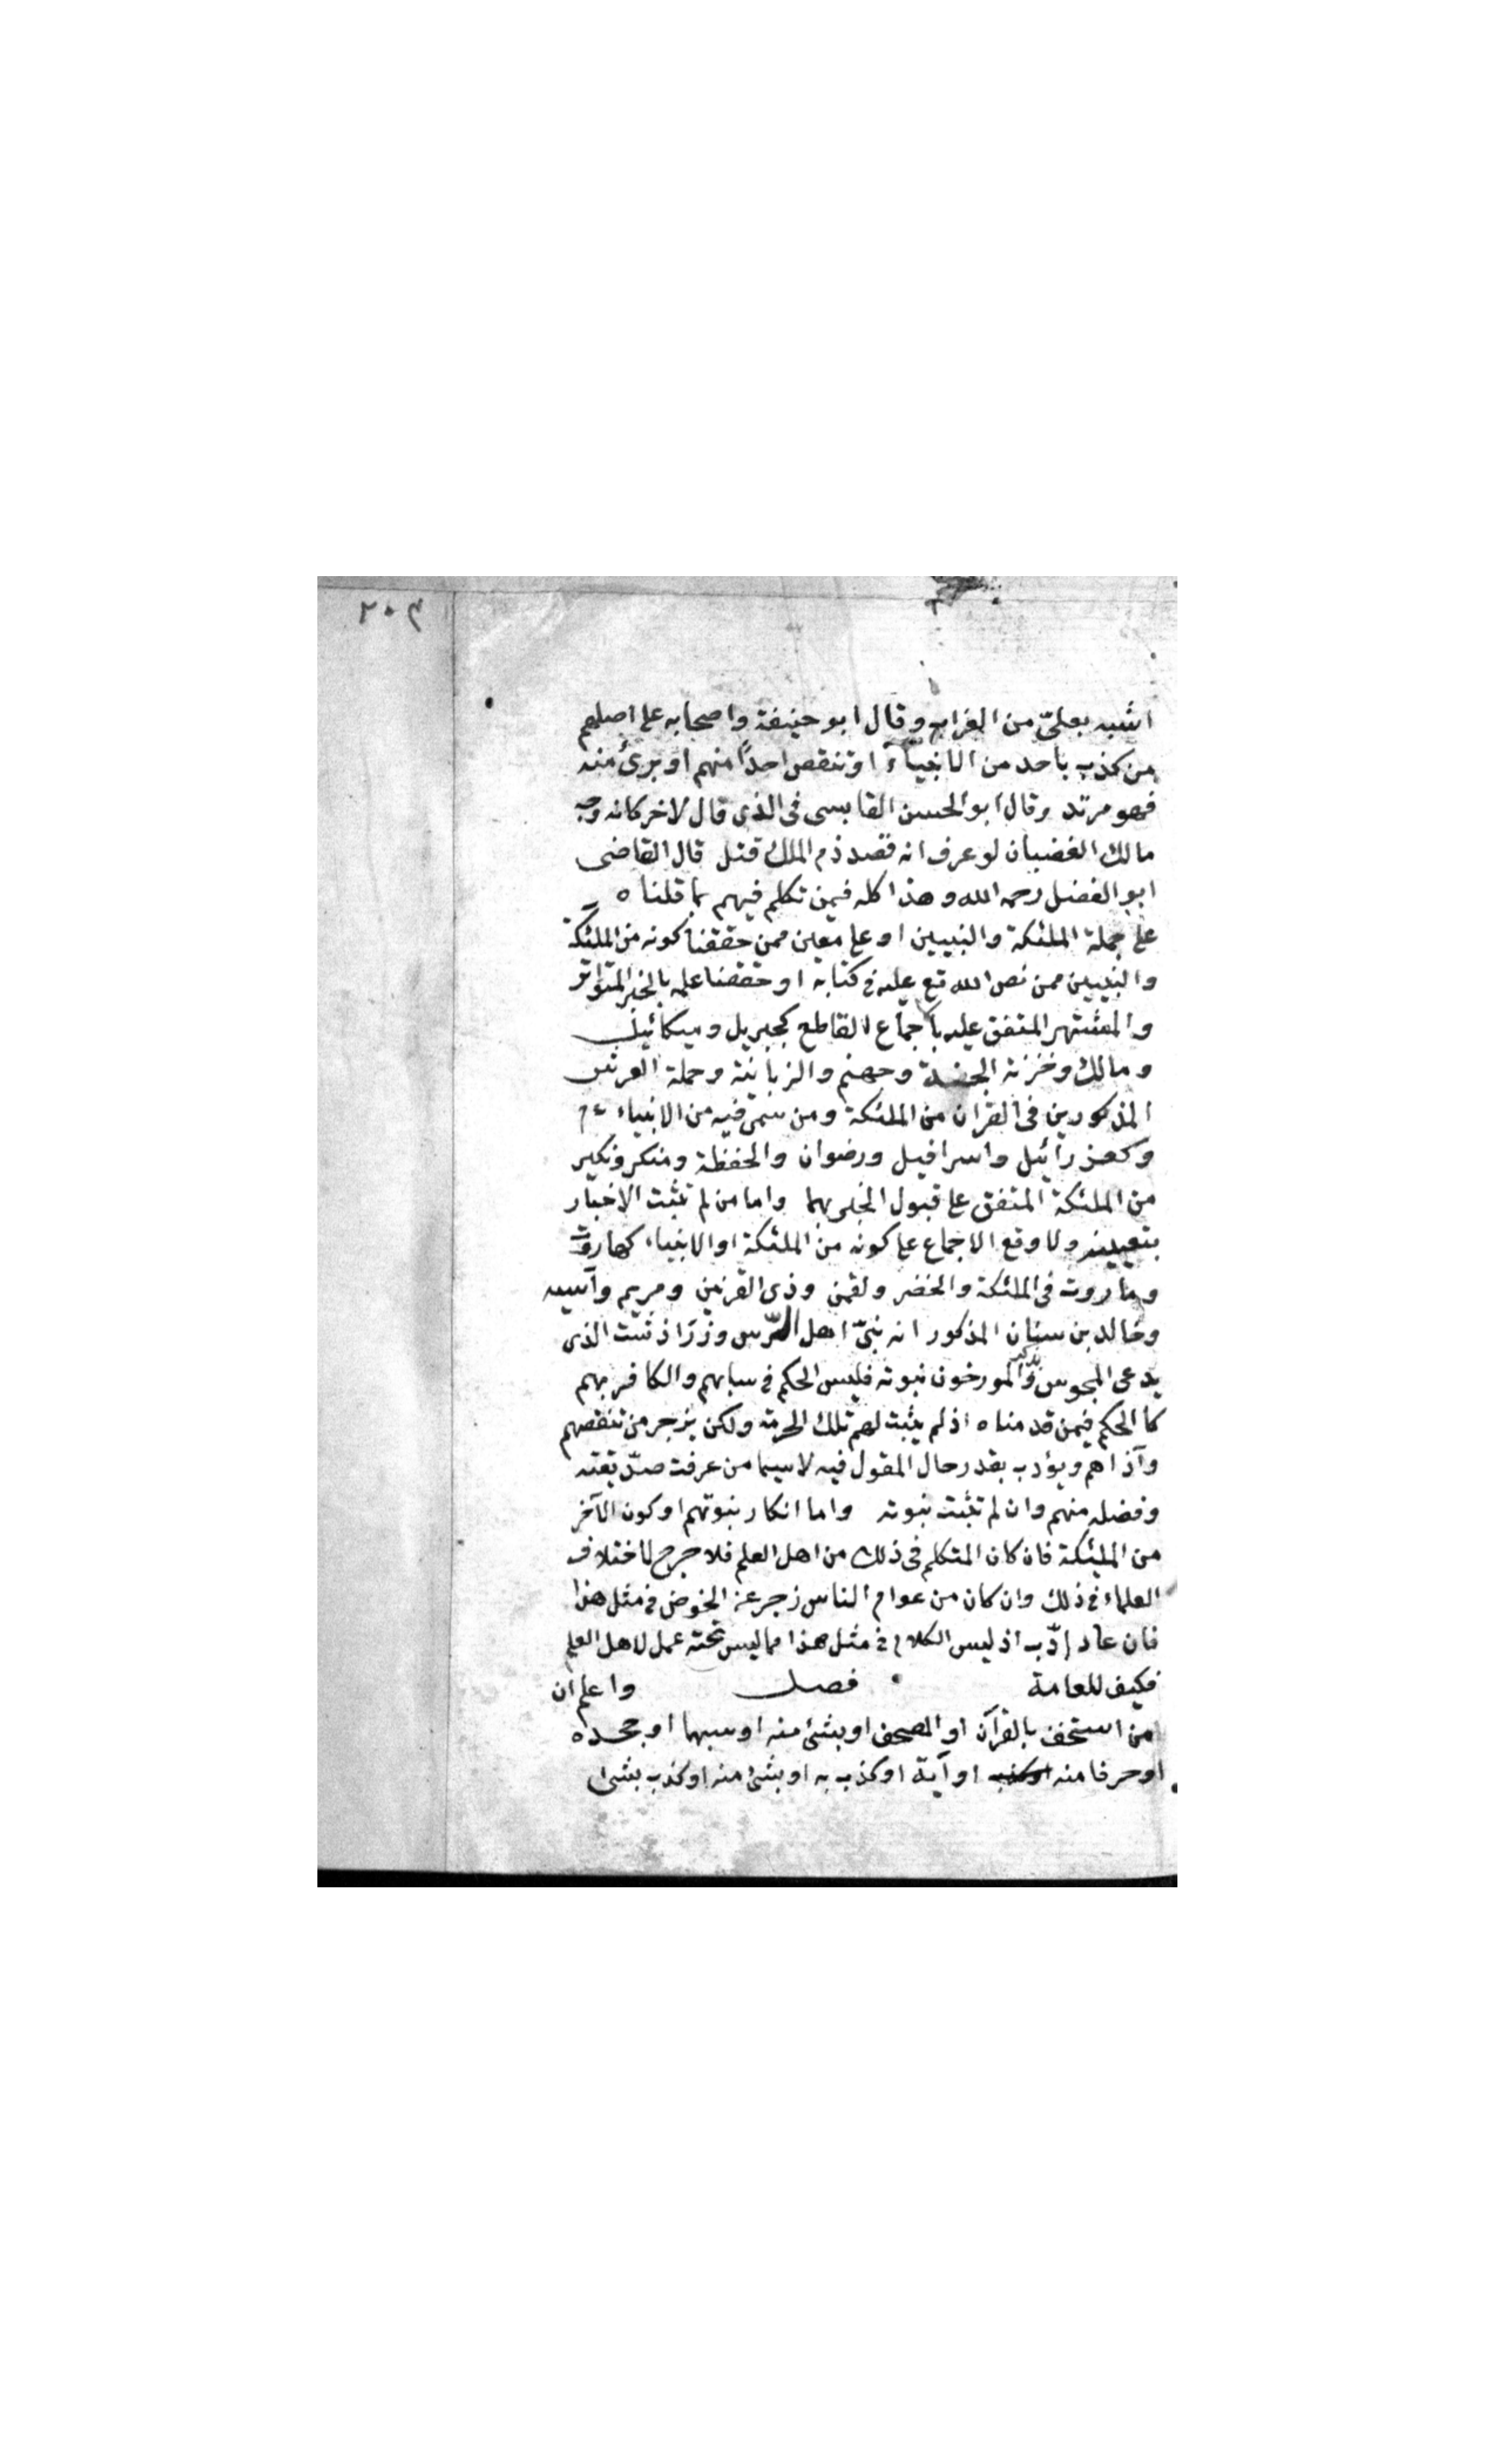 ٢٠٣
اشبه بعلىّ من الغراب وقال ابو حنيفة واصحابه على اصلهم
من كذب باحد من الانبياء او تنقص احدًا منهم او برئ منه
فهو مرتد وقال ابو الحسن القابسى فى الذى قال لاخر كانه وجه
مالك الغضبان لو عرف انه قصد ذم الملك قتل قال القاضى
ابو الفضل رحمه الله وهذا كله فيمن تكلم فيهم بما قلناه
على جملة الملئكة والنبيين او على معين ممن حققنا كونه من الملئكة
والنبيين ممن نص الله تع عليه فى كتابه او حققنا علمه بالخبر المتواتر
والمشتهر المتفق عليه باجماع القاطع كجبريل وميكائيل
ومالك وخزنة الجنة وجهنم والزبانية وحملة العرش
المذكورين فى القرآن من الملئكة ومن سمى فيه من الانبياء ع م
وكعزرائيل واسرافيل ورضوان والحفظة ومنكر ونكير
من الملئكة المتفق على قبول الخبر بهما واما من لم تثبت الاخبار
بتعيينه ولا وقع الاجماع على كونه من الملئكة او الانبياء كهاروت
وماروت فى الملئكة والخضر ولقمن وذى القرنين ومريم وآسيه
وخالد بن سنان المذكور انه نبىّ اهل الرّس وزرادشت الذى
يدعى المجوس والمورخون نبوته فليس الحكم فى سابهم والكافر بهم
كالحكم فيمن قدمناه اذ لم يثبت لهم تلك الحرمة ولكن يزجر من تنقصهم
وآذاهم ويؤدب بقدر حال المقول فيه لاسيما من عرفت صدّيقته
وفضله منهم وان لم تثبت نبوته واما انكار نبوّتهم او كون الآخر
من الملئكة فان كان المتكلم فى ذلك من اهل العلم فلا حرج لاختلاف
العلماء فى ذلك وان كان من عوام الناس زجر عن الخوض فى مثل هذا
فان عاد ادّب اذ ليس الكلام فى مثل هذا مما ليس تحته عمل لاهل العلم
فكيف للعامة فصل واعلم ان
من استخف بالقرآن او المصحف او بشئ منه او سبهما او جحده
او حرفا منه او آية او كذب به او بشئ منه او كذب بشئ